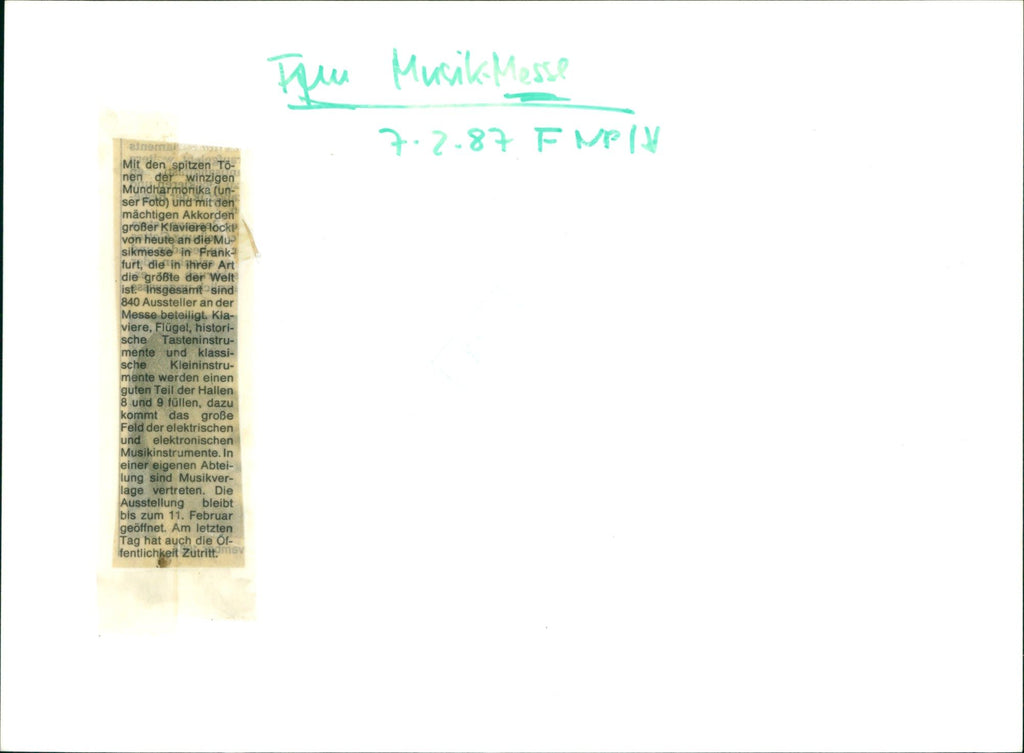 MusikMesse
7.2.87 F NP/H
Mit den spitzen Tö-
nen der winzigen
Mundharmonika (un-
ser Foto) und mit den
mächtigen Akkorden
großer Klaviere lockt
von heute an die Mu-
sikmesse in Frank-
furt, die in ihrer Art
die größte der Welt
ist. Insgesamt sind
840 Aussteller an der
Messe beteiligt. Kla-
viere, Flügel, histori-
sche Tasteninstru-
mente und klassi-
sche Kleininstru-
mente werden einen
guten Teil der Hallen
8 und 9 füllen, dazu
kommt das große
Feld der elektrischen
und elektronischen
Musikinstrumente. In
einer eigenen Abtei-
lung sind Musikver-
lage vertreten. Die
Ausstellung bleibt
bis zum 11. Februar
geöffnet. Am letzten
Tag hat auch die Öf-
fentlichkeit Zutritt.